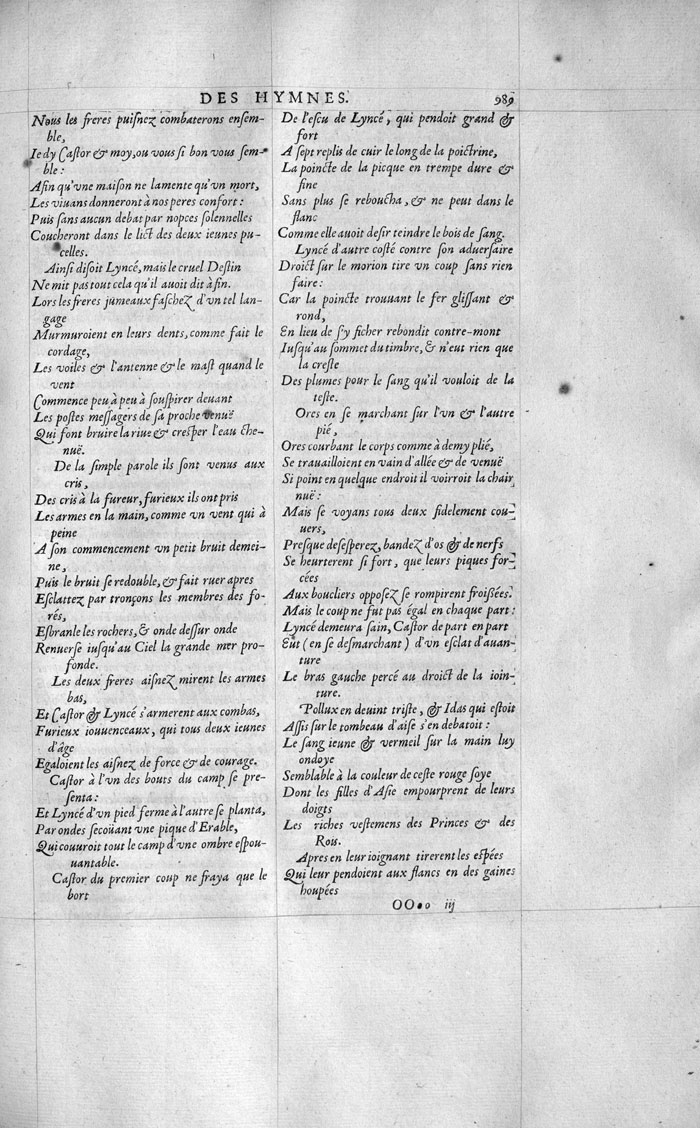 DES HYMNES. 989
Nous les freres puisnez combaterons ensem-
ble,
Ie dy Castor & moy, ou vous si bon vous sem-
ble :
Afin qu'vne maison ne lamente qu'vn mort,
Les viuans donneront à nos peres confort :
Puis sans aucun debat par nopces solennelles
Coucheront dans le lict des deux ieunes pu-
celles.
Ainsi disoit Lyncé, mais le cruel Destin
Ne mit pas tout cela qu'il auoit dit à fin.
Lors les freres jumeaux faschez d'vn tel lan-
gage
Murmuroient en leurs dents, comme fait le
cordage,
Les voiles & l'antenne & le mast quand le
vent
Commence peu à peu à souspirer deuant
Les postes messagers de sa proche venuë
Qui font bruire la riue & cresper l'eau che-
nuë.
De la simple parole ils sont venus aux
cris,
Des cris à la fureur, furieux ils ont pris
Les armes en la main, comme vn vent qui à
peine
A son commencement vn petit bruit demei-
ne,
Puis le bruit se redouble, & fait ruer apres
Esclattez par tronçons les membres des fo-
rés,
Esbranle les rochers, & onde dessur onde
Renuerse iusqu'au Ciel la grande mer pro-
fonde.
Les deux freres aisnez mirent les armes
bas,
Et Castor & Lyncé s'armerent aux combas,
Furieux iouuenceaux, qui tous deux ieunes
d'âge
Egaloient les aisnez de force & de courage.
Castor à l'vn des bouts du camp se pre-
senta :
Et Lyncé d'vn pied ferme à l'autre se planta,
Par ondes secoüant vne pique d'Erable,
Qui couuroit tout le camp d'vne ombre espou-
uantable.
Castor du premier coup ne fraya que le
bort
De l'escu de Lyncé, qui pendoit grand &
fort
A sept replis de cuir le long de la poictrine,
La poincte de la picque en trempe dure &
fine
Sans plus se reboucha, & ne peut dans le
flanc
Comme elle auoit desir teindre le bois de sang.
Lyncé d'autre costé contre son aduersaire
Droict sur le morion tire vn coup sans rien
faire :
Car la poincte trouuant le fer glissant &
rond,
En lieu de s'y ficher rebondit contre-mont
Iusqu'au sommet du timbre, & n'eut rien que
la creste
Des plumes pour le sang qu'il vouloit de la
teste.
Ores en se marchant sur l'vn & l'autre
pié,
Ores courbant le corps comme à demy plié,
Se trauailloient en vain d'allée & de venuë
Si point en quelque endroit il voirroit la chair
nuë :
Mais se voyans tous deux fidelement cou-
uers,
Presque desesperez, bandez d'os & de nerfs
Se heurterent si fort, que leurs piques for-
cées
Aux boucliers opposez se rompirent froissées.
Mais le coup ne fut pas égal en chaque part :
Lyncé demeura sain, Castor de part en part
Eut (en se desmarchant) d'vn esclat d'auan-
ture
Le bras gauche percé au droict de la ioin-
ture.
Pollux en deuint triste, & Idas qui estoit
Assis sur le tombeau d'aise s'en debatoit :
Le sang ieune & vermeil sur la main luy
ondoye
Semblable à la couleur de ceste rouge soye
Dont les filles d'Asie empourprent de leurs
doigts
Les riches vestemens des Princes & des
Rois.
Apres en leur ioignant tirerent les espées
Qui leur pendoient aux flancs en des gaines
houpées
OOoo iij